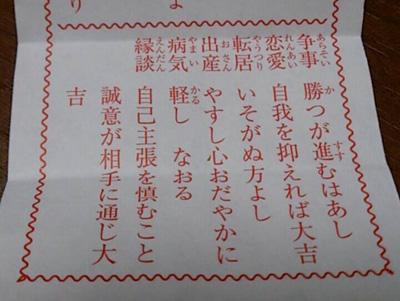 よ
り
あらそい
争事 勝つが進むはあし
か すす
れんあい
恋愛 自我を抑えれば大吉
やうつり
転居 いそがぬ方よし
おさん
出産 やすし心おだやかに
やまい かる
病気 軽し なおる
えんだん
縁談 自己主張を慎むこと
誠意が相手に通じ大
吉